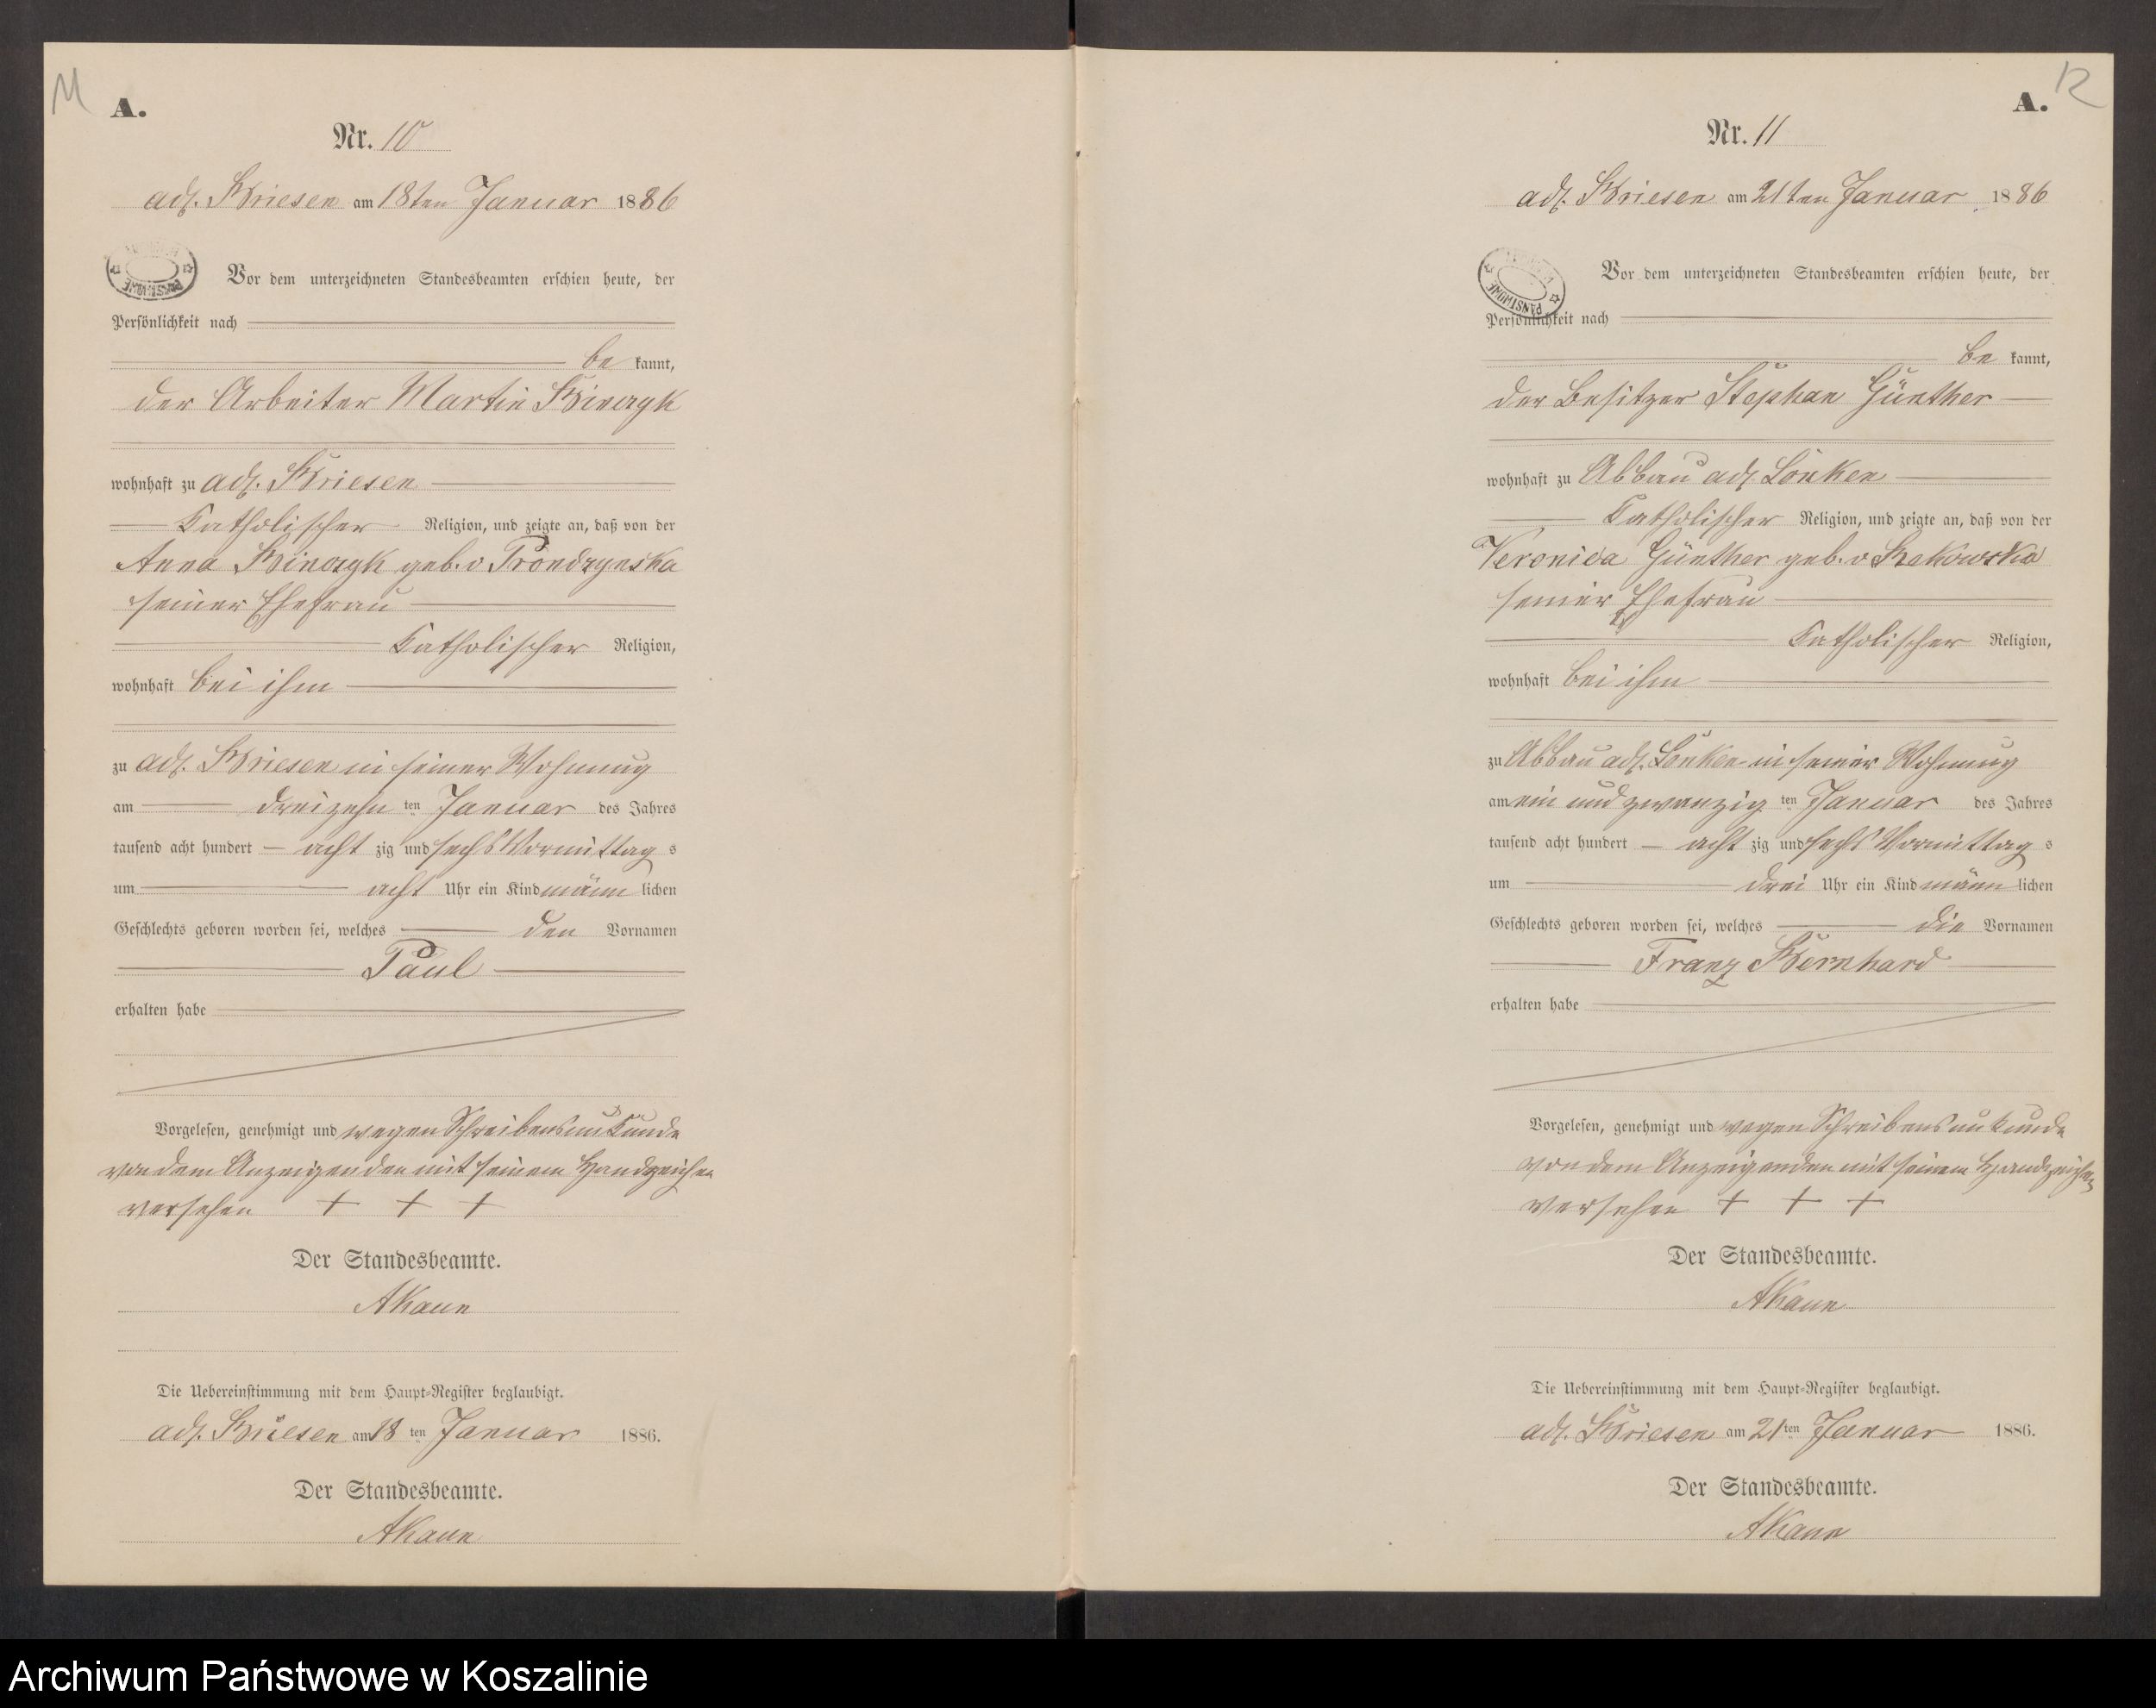 M
A.
Nr. 10
adl. Briesen am 18ten Januar 1886
Vor dem unterzeichneten Standesbeamten erschien heute, der
Persönlichkeit nach
be kannt,
der Arbeiter Martin
wohnhaft zu adl. Briesen
Katholischer Religion, und zeigte an, daß von der
Anna geb. v Prondzynska
seiner Ehefrau
Katholischer Religion,
wohnhaft bei ihm
zu adl. Briesen in seiner Wohnung
am dreizehn ten Januar des Jahres
tausend acht hundert acht zig und sechs Vormittag s
um acht Uhr ein Kind männ lichen
Geschlechts geboren worden sei, welches den Vornamen
Paul
erhalten habe
Vorgelesen, genehmigt und wegen Schreibensunkunde
von dem Anzeigenden mit seinem Handzeichen
versehen + + +
Der Standesbeamte.
Die Uebereinstimmung mit dem Haupt-Register beglaubigt.
adl. Briesen am 18 ten Januar 1886.
Der Standesbeamte.
12
A.
Nr. 11
adl. Briesen am 21ten Januar 1886
PAŃSTWOWE
Vor dem unterzeichneten Standesbeamten erschien heute, der
Persönlichkeit nach
be kannt,
der Besitzer Stephan Günther
wohnhaft zu Abbau adl. Lonken
Katholischer Religion, und zeigte an, daß von der
Veronica Günther geb. v Rekowska
seiner Ehefrau
Katholischer Religion,
wohnhaft bei ihm
zu Abbau adl. Lonken in seiner Wohnung
am ein und zwanzig ten Januar des Jahres
tausend acht hundert acht zig und sechs Vormittag s
um drei Uhr ein Kind männ lichen
Geschlechts geboren worden sei, welches die Vornamen
Franz Bernhard
erhalten habe
Vorgelesen, genehmigt und wegen Schreibensunkunde
von dem Anzeigenden mit seinem Handzeichen
versehen + + +
Der Standesbeamte.
Die Uebereinstimmung mit dem Haupt-Register beglaubigt.
adl. Briesen am 21 ten Januar 1886.
Der Standesbeamte.
Archiwum Państwowe w Koszalinie